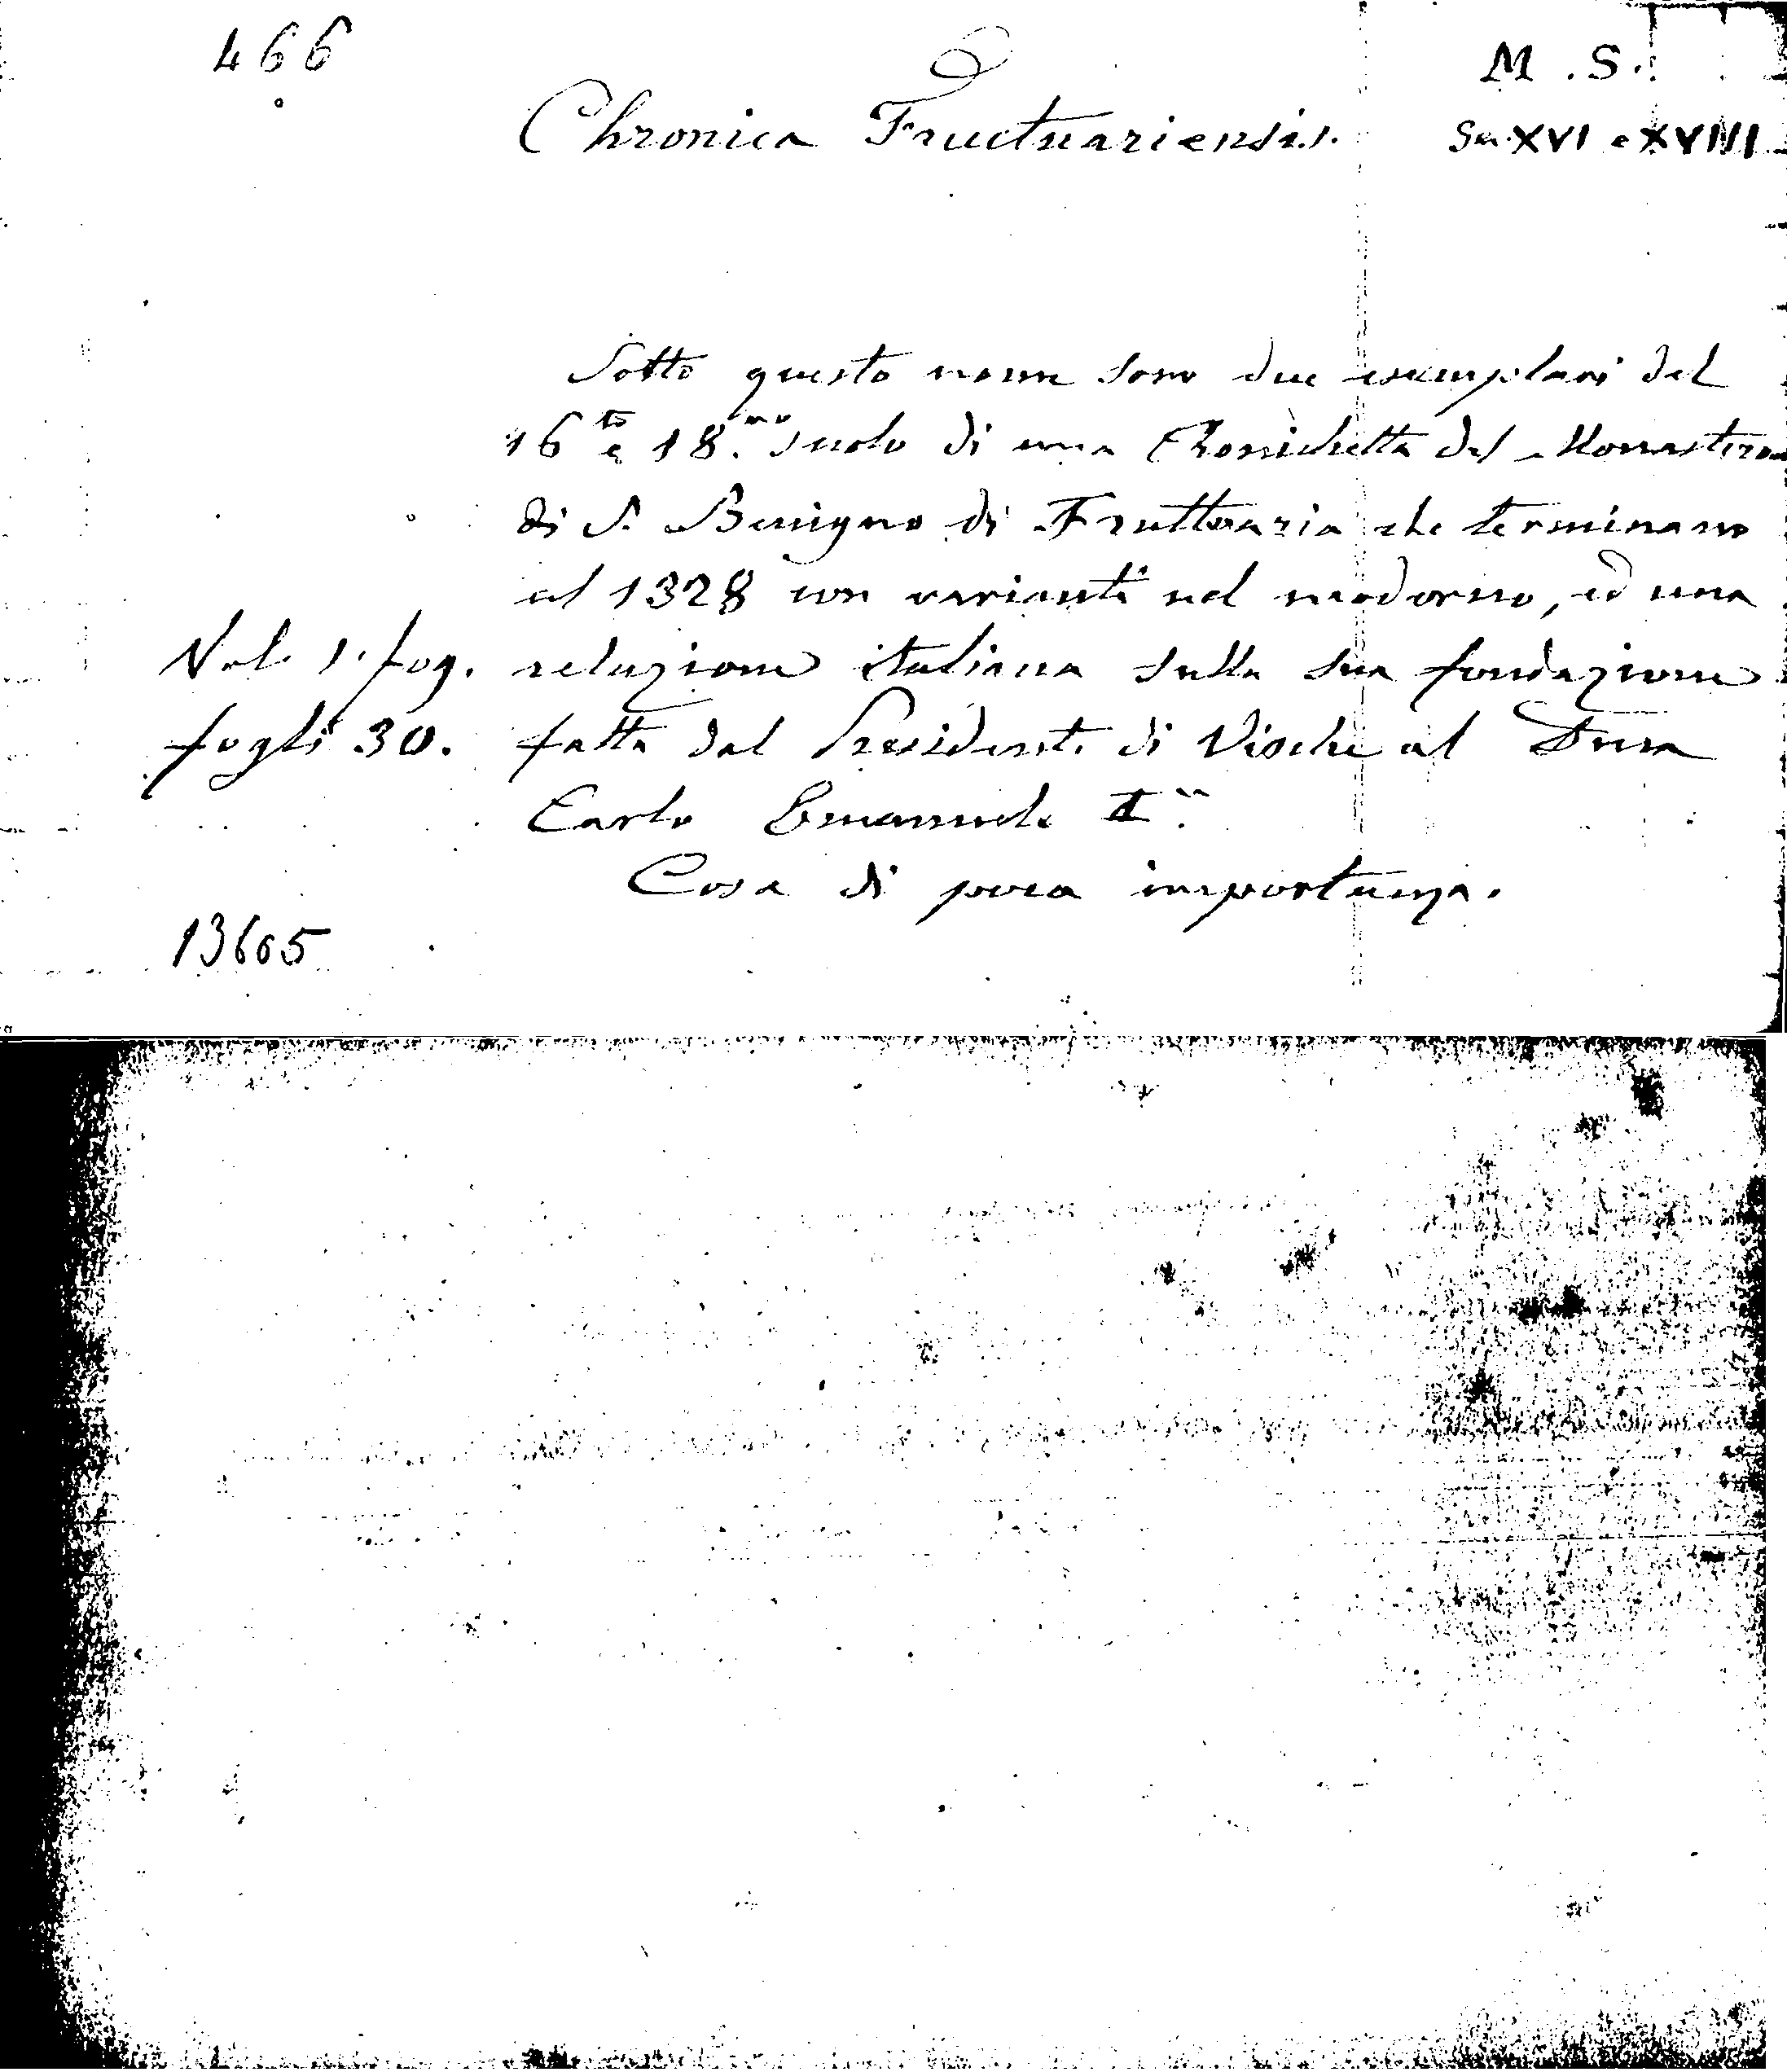 466
M. S.
Chronica Fructuariensis.
Sec. XVI e XVIII
Sotto questo nome sono due esemplari del
16.to e 18.mo secolo di una Chronichetta del Monastero
di S. Benigno di Fruttuaria che terminano
al 1328 con varianti nel moderno, ed una
Vol. 1. fog. relazione italiana sulla sua fondazione
fogli 30. fatta dal Presidente di Vische al Duca
Carlo Emanuele I.o
Cosa di poca importanza.
13605